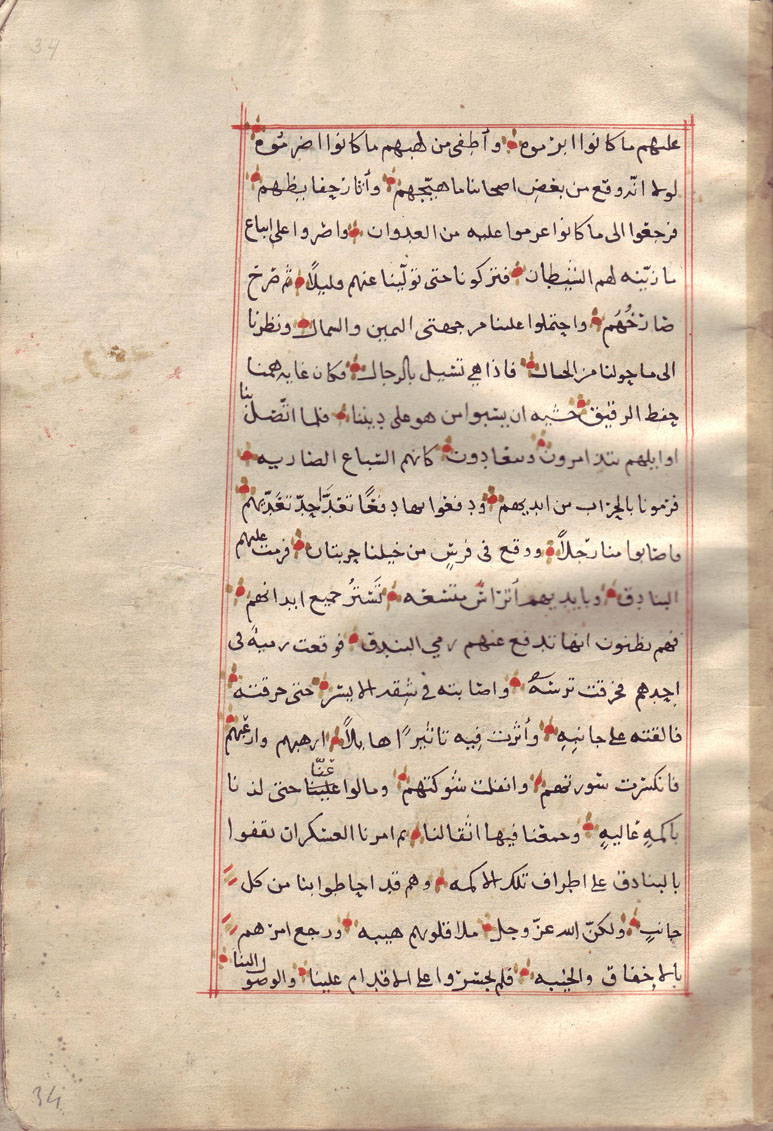 34
عليهم ما كانوا ابرموه وأطفى من لهبهم ما كانوا اضرموه
لولا انه وقع من بعض اصحابنا ما هيّجهم وأثار حفايظهم
فرجعوا الى ما كانوا عزموا عليه من العدوان واصروا على اتباع
ما زيّنه لهم الشيطان فتركونا حتى تولّينا عنهم قليلاً ثم صرخ
صارخُهُم واحتملوا علينا من جهتي اليمين والشمال ونظرنا
الى ما حولنا من الجبال فاذا هي تسيل بالرجال فكان غاية همنا
حفظ الرقيق خشية ان يسبوا من هو على ديننا فلما اتّصل بنا
اوايلهم يتدامرون ويتعادون كانهم السباع الضاريه
فرمونا بالحراب من ايديهم ودفعوا بها دفعًا تعدّا حدّ تعدّيهم
فاصابوا منا رجلاً ووقع في فرسٍ من خيلنا حربتان فرمت عليهم
البنادق وبايديهم أتراسٌ متسعه تَستُر جميع ابدانهم
فهم يظنون انها تدفع عنهم رمي البندق فوقعت رمية في
احدهم فخرقت ترسه واصابته في شقه الايسر حتى خرقته
فالقته على جانبه وأثرت فيه تاثيرًا هايلاً ارهبهم وارعبهم
فانكسرت سورتهم وانفلت شوكتهم ومالوا علينا عنّا حتى لذنا
باكمةٍ عاليةٍ وجمعنا فيها اثقالنا ثم امرنا العسكر ان يقفوا
بالبنادق على اطراف تلك الاكمه وهم قد احاطوا بنا من كل
جانبٍ ولكنّ الله عزّ وجل ملا قلوبهم هيبه ورجع امرهم
بالاخفاق والخيبه فلم يجسروا على الاقدام علينا والوصول الينا
34